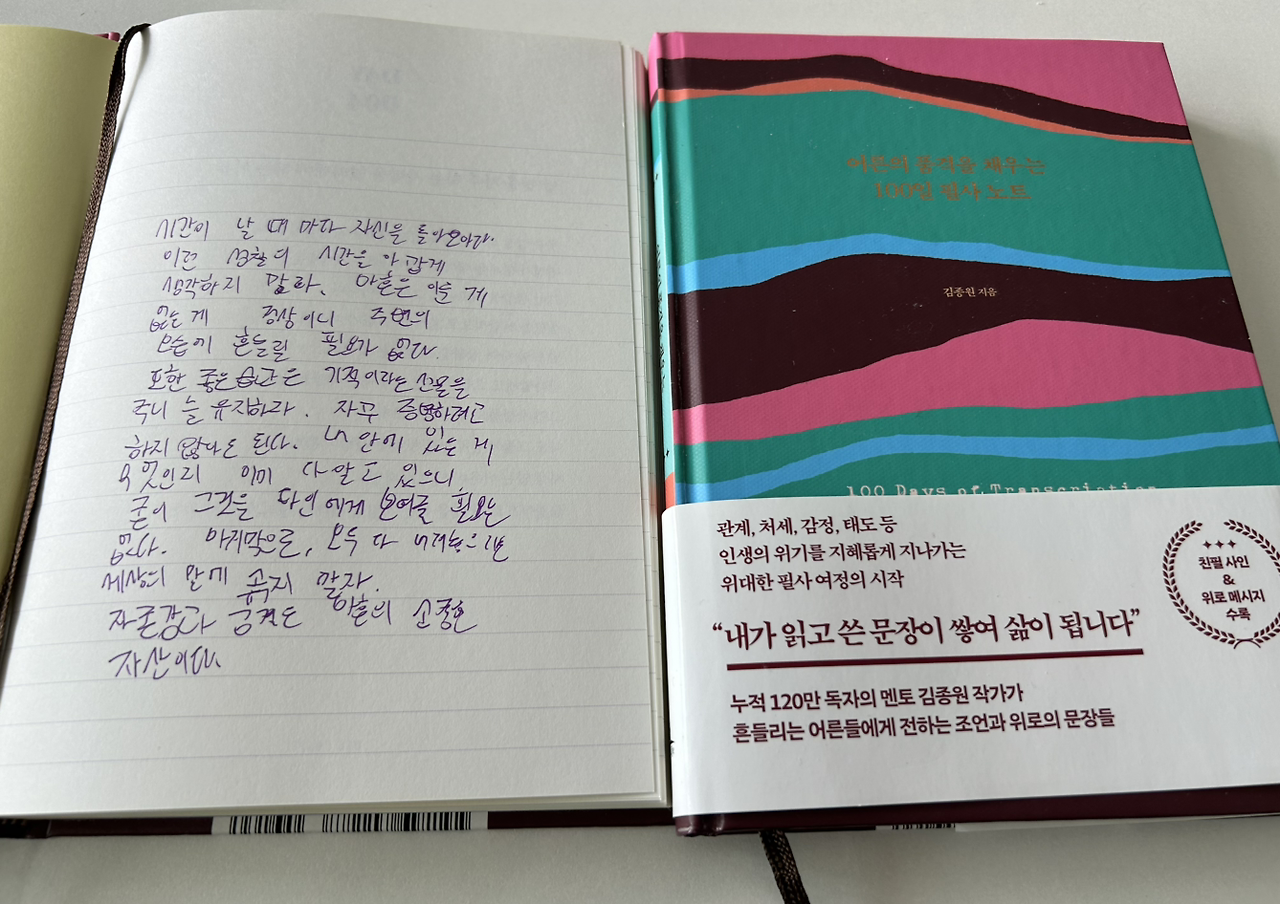 시간이 날 때 마다 자신을 돌아보아라.
이런 성찰의 시간을 아깝게
생각하지 말라. 마흔은 이룬 게
없는 게 정상이니 주변의
모습에 흔들릴 필요가 없다.
또한 좋은 습관은 기적이라는 선물을
주니 늘 유지하라. 자꾸 증명하려고
하지 않아도 된다. 내 안에 있는 게
무엇인지 이미 다 알고 있으니
굳이 그것을 타인에게 보여줄 필요는
없다. 마지막으로, 모두 다 내려놓으면
세상의 말에 속지 말자.
자존감과 궁지는 마흔의 소중한
자산이다.
어른의 품격을 채우는
100일 필사 노트
김종원 지음
100 Days of Transcription
관계, 처세, 감정, 태도 등
인생의 위기를 지혜롭게 지나가는
위대한 필사 여정의 시작
“내가 읽고 쓴 문장이 쌓여 삶이 됩니다”
누적 120만 독자의 멘토 김종원 작가가
흔들리는 어른들에게 전하는 조언과 위로의 문장들
친필 사인
&
위로 메시지
수록